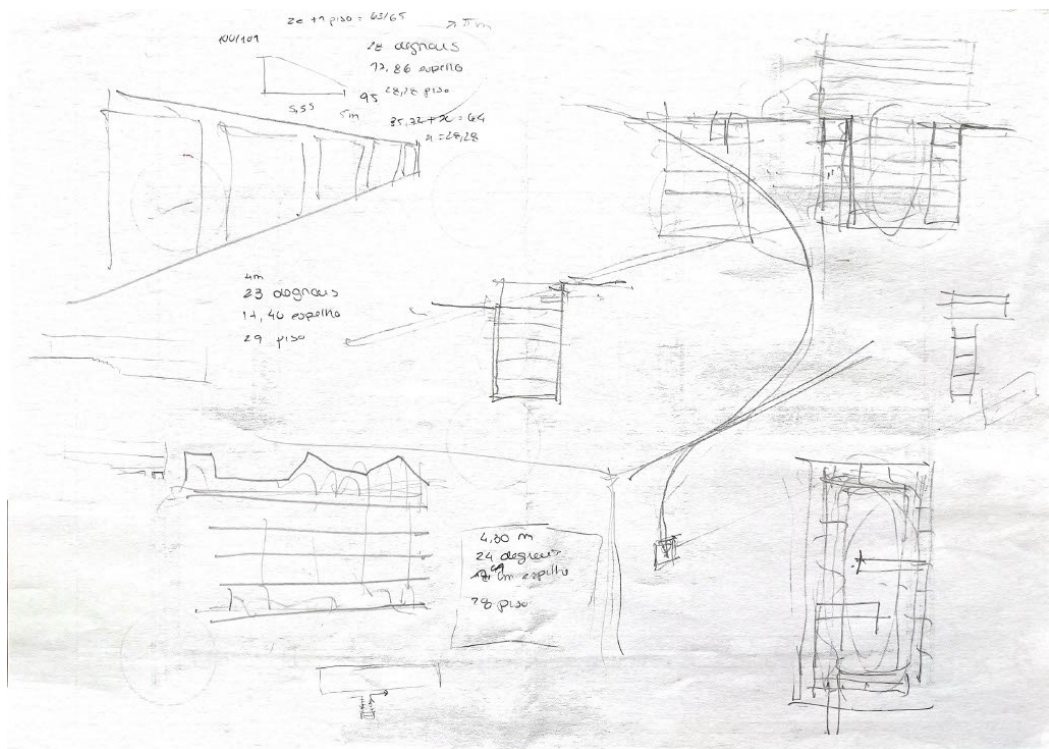 2e + 1 piso = 63/65
100/101
28 degraus
17,86 espelho
28,28 piso
95
5,55
5m
35,72 + x = 64
x = 28,28
4m
23 degraus
17,40 espelho
29 piso
4,30 m
24 degraus
cm espelho
28 piso